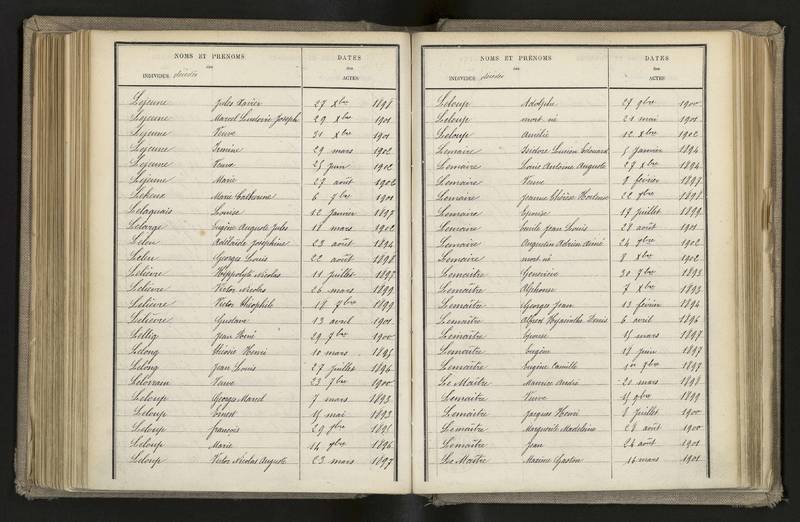 NOMS ET PRÉNOMS
DES
INDIVIDUS décédés
DATES
DES
ACTES
Lejeune Jules Xavier 27 Xbre 1898
Lejeune Marcel Ludovic Joseph 29 Xbre 1901
Lejeune Veuve 21 Xbre 1901
Lejeune 29 mars 1902
Lejeune Veuve 25 juin 1902
Lejeune Marie 27 août 1902
Marie Catherine 6 7bre 1901
Lelaquais Louise 12 Janvier 1897
Lelarge Eugène Auguste Jules 18 mars 1902
Leleu Adélaïde Joséphine 23 août 1894
Leleu Georges Louis 22 août 1898
Lelièvre Hyppolyte Nicolas 11 juillet 1893
Lelièvre Victor Nicolas 26 mars 1899
Lelièvre Victor Théophile 18 9bre 1899
Lelièvre Gustave 13 avril 1901
Jean René 29 7bre 1900
Lelong Henri 10 mars 1895
Lelong Jean Louis 27 Juillet 1896
Lelorrain Veuve 23 7bre 1900
Leloup Georges Marcel 7 mars 1893
Leloup Ernest 15 mai 1893
Leloup François 29 9bre 1895
Leloup Marie 14 9bre 1896
Leloup Victor Nicolas Auguste 23 mars 1897
NOMS ET PRÉNOMS
DES
INDIVIDUS décédés
DATES
DES
ACTES
Leloup Adolphe 27 9bre 1900
Leloup mort né 21 mai 1901
Leloup Amélie 12 Xbre 1902
Lemaire Isidore Lucien Edouard 5 Janvier 1894
Lemaire Louis Antoine Auguste 27 Xbre 1894
Lemaire Veuve 9 février 1897
Lemaire Jeanne Thérèse Hortense 22 9bre 1898
Lemaire Epouse 17 juillet 1899
Lemaire Emile Jean Louis 28 août 1901
Lemaire Augustin Adrien Aimé 24 9bre 1902
Lemaire mort né 8 Xbre 1902
Lemaitre Geneviève 30 7bre 1893
Lemaître Alphonse 7 Xbre 1893
Lemaître Georges Jean 13 février 1894
Lemaître Alfred Hyacinthe Denis 6 avril 1896
Lemaître Epouse 15 mars 1897
Lemaître Eugène 18 juin 1897
Lemaître Eugène Camille 1er 9bre 1897
Le Maître Maurice André 21 mars 1898
Lemaître Veuve 15 9bre 1899
Lemaître Jacques Henri 8 juillet 1900
Lemaître Marguerite Madeleine 28 août 1900
Lemaître Jean 24 août 1901
Le Maître Maxime Gaston 14 mars 1901